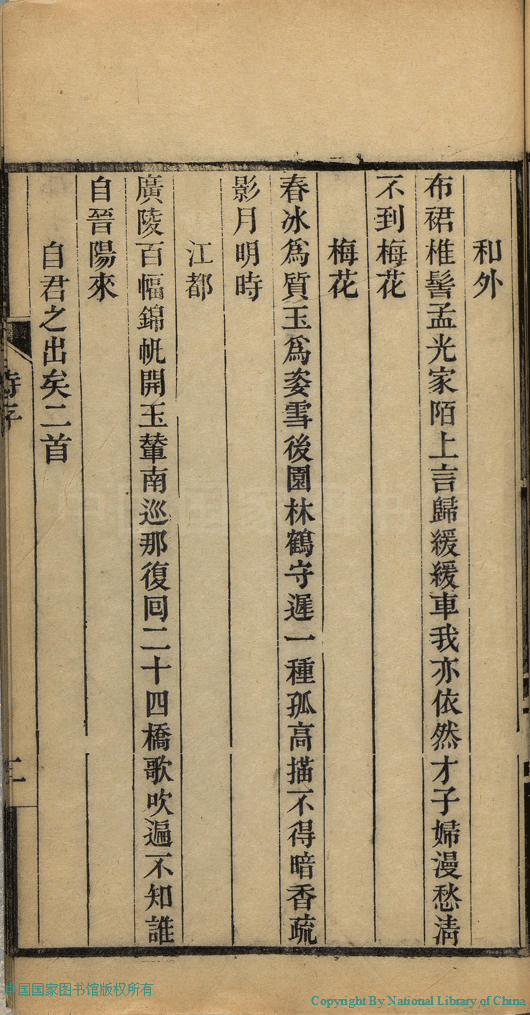 和外
布裙椎髻孟光家陌上言歸緩緩車我亦依然才子婦漫愁清
不到梅花
梅花
春冰爲質玉爲姿雪後園林鶴守遲一種孤高描不得暗香疏
影月明時
江都
廣陵百幅錦帆開玉輦南巡那復回二十四橋歌吹遍不知誰
自晉陽來
自君之出矣二首
三
中国国家图书馆版权所有
Copyright By National Library of China